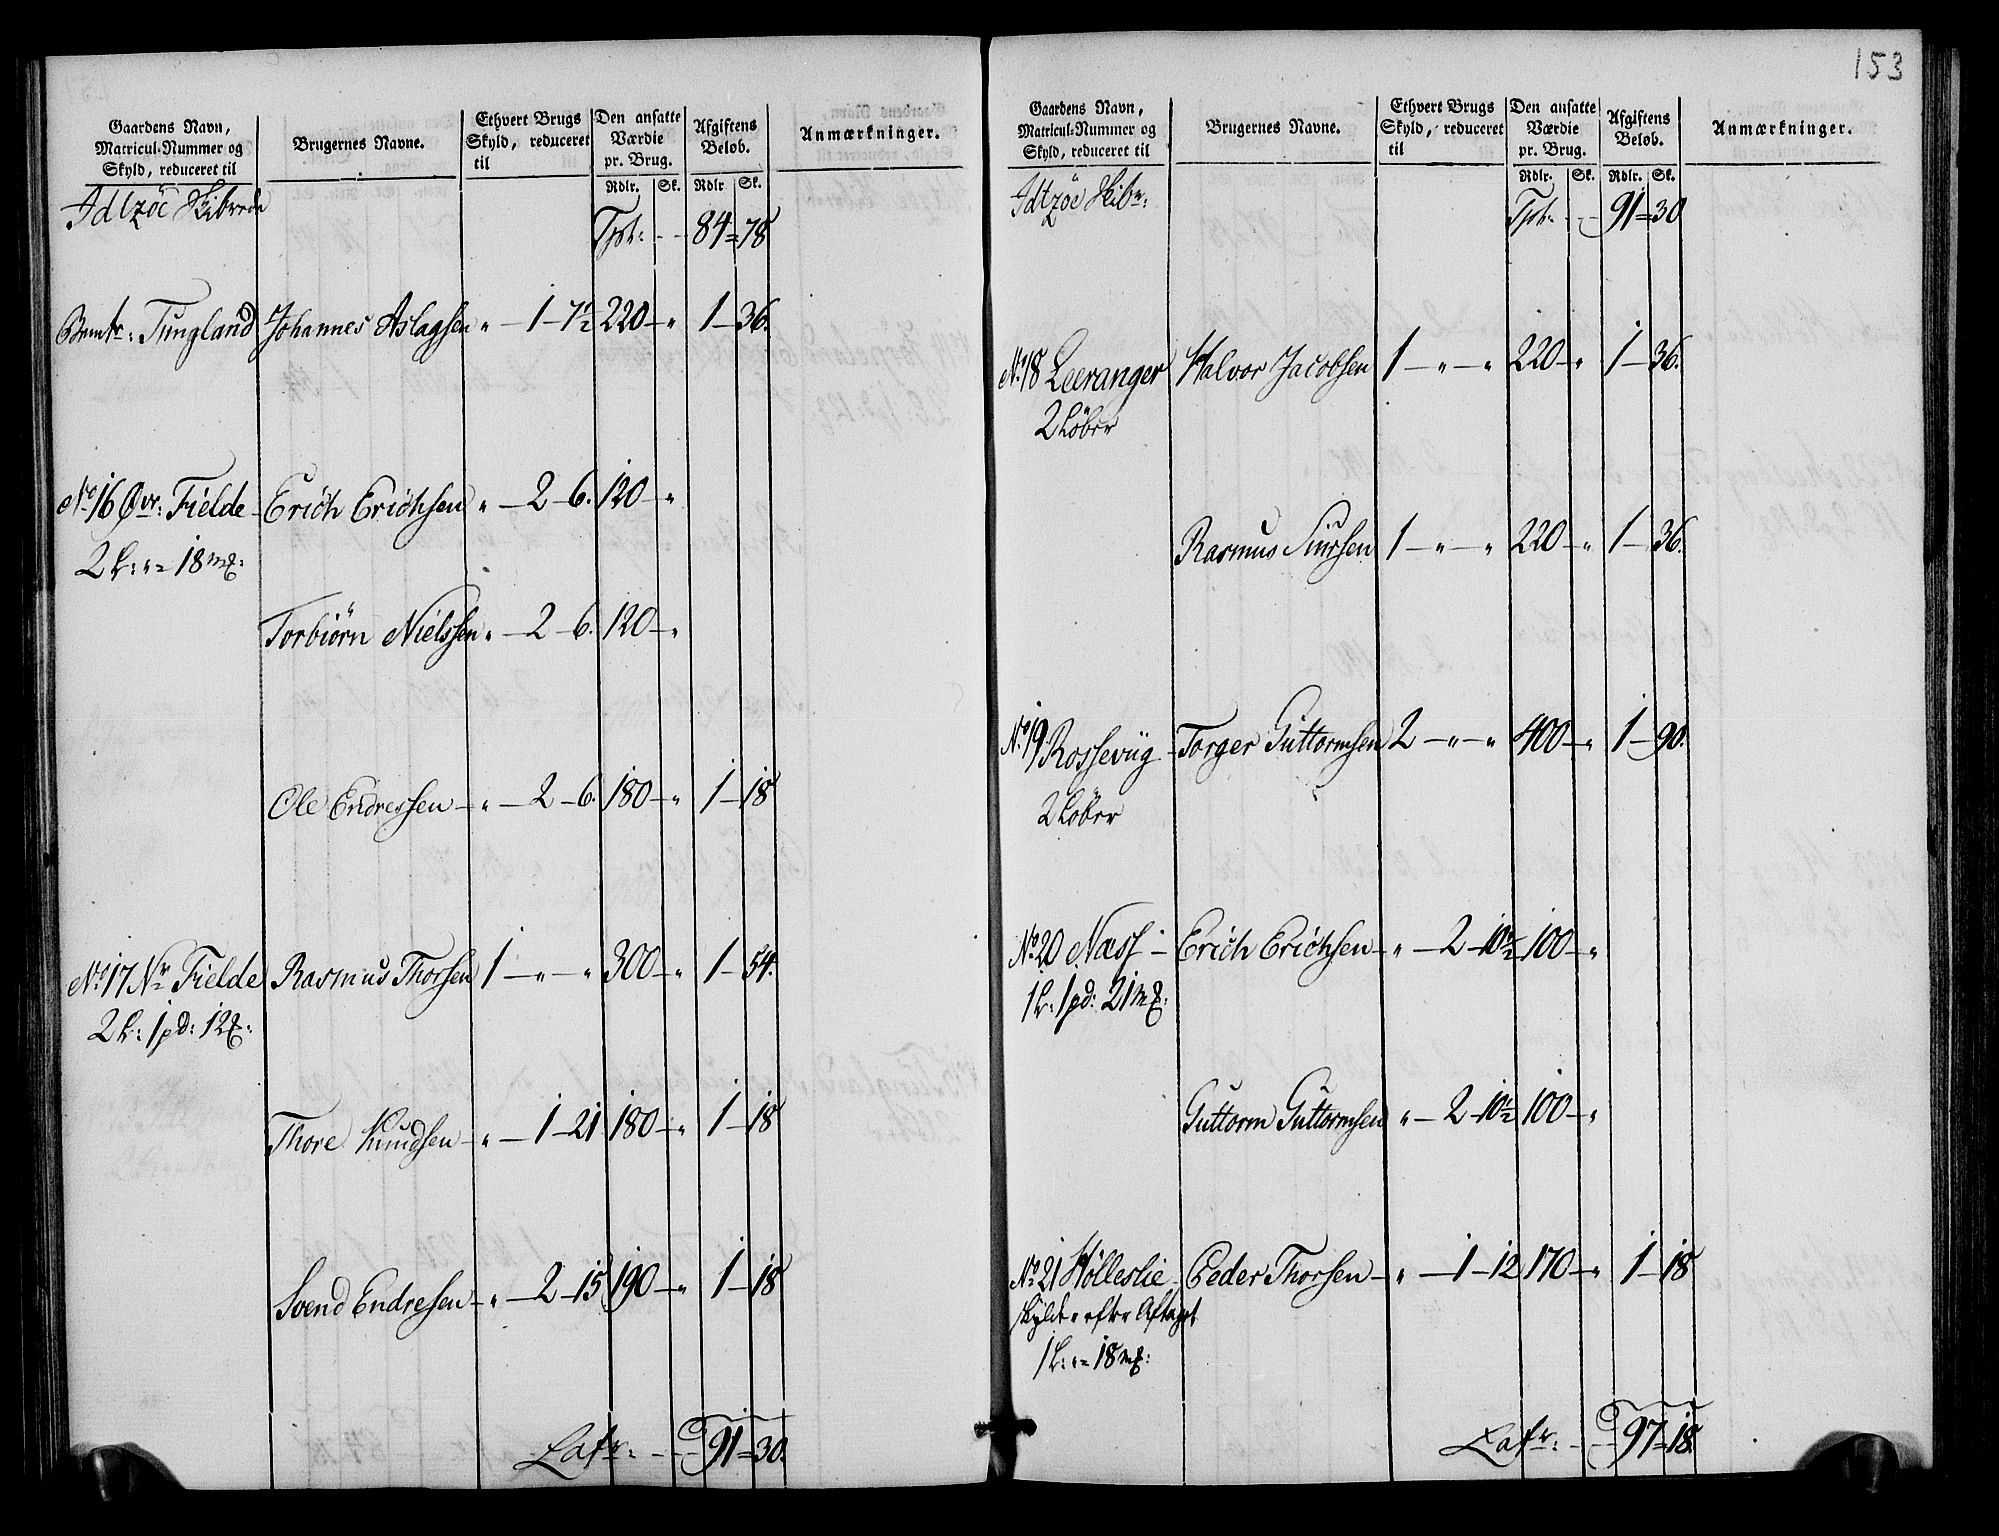 Gaardens Navn,
Matricul-Nummer og
Skyld, reduceret til
Brugernes Navne.
Ethvert Brugs
Skyld, reduceret
til
Den ansatte
Værdie
pr. Brug.
Afgiftens
Beløb.
Anmærkninger.
Rdlr. Sk. Rdlr Sk.
Idtzöe Skibrede
Tpt: - - 84 = 78
Tungland Johannes Aslagsen " - 1 - 7½ 220 - " 1 - 36.
No 16 Øvr: Fielde - Erich Erichsen " - 2 - 6. 120 - "
2 L: " = 18 m℔:
Torbiörn Nielssen " - 2 - 6. 120 - "
Ole Endressen - " - 2 - 6. 180 - " 1 - 18
No 17 Nr Fielde Rasmus Thorsen 1 - " - " 300 - " 1 - 54.
2 L: 1 pd: 12 ℔:
Thore Knudsen - " - 1 - 21 180 - " 1 - 18
Svend Endresen - " - 2 - 15 190 - " 1 - 18
Lafr: - - 91 = 30.
153
Gaardens Navn,
Matricul-Nummer og
Skyld, reduceret til
Brugernes Navne.
Ethvert Brugs
Skyld, reduceret
til
Den ansatte
Værdie
pr. Brug.
Afgiftens
Beløb.
Anmærkninger.
Rdlr. Sk. Rdlr. Sk.
Idtzöe Skibr:
Tpt: - - 91 = 30
No 18 Leeranger Halvor Jacobsen 1 - " - " 220 - " 1 - 36.
2 Löber
Rasmus Siursen 1 - " - " 220 - " 1 - 36.
No 19. Rossevüg - Torger Guttormsen 2 - " - " 400 - " 1 - 90.
2 Löber
No 20 Næss - Erich Erichsen - " - 2 - 10½ 100 - "
1 L: 1 pd: 21 m℔:
Guttorm Guttormsen " - 2 - 10½ 100 - "
No 21 Hölleslie - Peder Thorsen - " - 1 - 12 170 - " 1 - 18
skylder efter Aftaget
1 L: " = 18 m℔:
Lafr: - - 97 = 18.